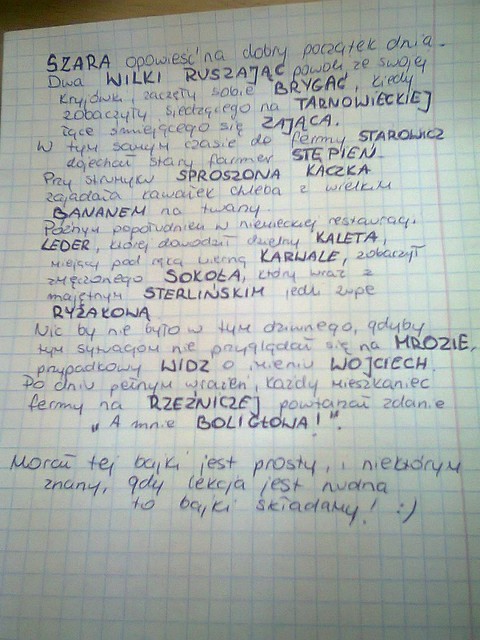 SZARA opowieść na dobry początek dnia.
Dwa WILKI RUSZAJĄC powoli ze swojej
kryjówki, zaczęły sobie BRYGAĆ, kiedy
zobaczyły siedzącego na TARNOWIECKIEJ
łące śmiejącego się ZAJĄCA.
W tym samym czasie do fermy STAROWICZ
dojechał stary farmer STĘPIEŃ.
Przy strumyku SPROSZONA KACZKA
zajadała kawałek chleba z wielkim
BANANEM na twarzy.
Późnym popołudniem w niemieckiej restauracji
LEDER, której dowodził dzielny KALETA,
miejący pod ręką wierną KARWALE, zobaczył
zmęczonego SOKOŁA, który wraz z
majętnym STERLIŃSKIM jedli zupę
RYŻAKOWĄ.
Nic by nie było w tym dziwnego, gdyby
tym sytuacjom nie przyglądał się na MROZIE,
przypadkowy WIDZ o imieniu WOJCIECH.
Po dniu pełnym wrażeń, każdy mieszkaniec
fermy na RZEŹNICZEJ powtarzał zdanie
"A mnie BOLIGŁOWA!".
Morał tej bajki jest prosty, i niektórym
znany, gdy lekcja jest nudna
to bajki składamy! :)